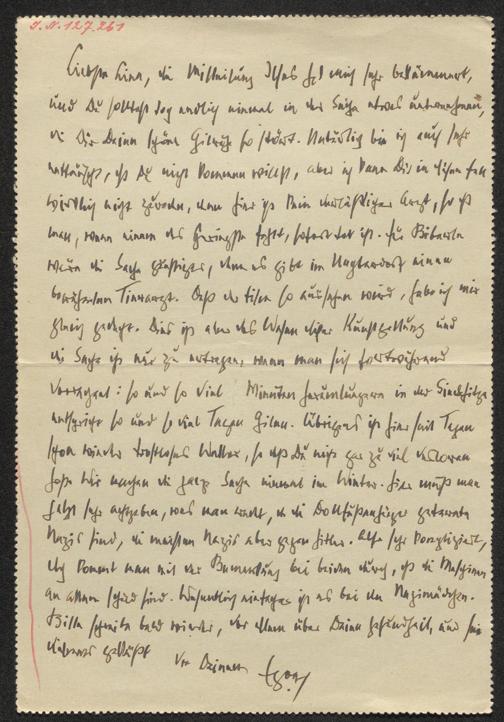 J.N. 127.261
Liebste Lina, die Mitteilung Ilses hat mich sehr bekümmert,
und Du solltest doch endlich einmal in der Sache etwas unternehmen,
die Dir Deine schöne so stört. Natürlich bin ich auch sehr
enttäuscht, daß Du nicht kommen willst, aber ich kann Dir in diesem Fall
wirklich nicht zureden, denn hier ist kein verläßlicher Arzt, so daß
man, wenn einem das Geringste fehlt, sofort tot ist. Für
wären die Sache günstiger, denn es gibt im Nachbardorf einen
bewährten Tierarzt. Daß der Film so aussehen wird, habe ich mir
gleich gedacht. Dies ist aber das Wesen dieser Kunstgattung und
die Sache ist nur zu ertragen, wenn man sich fortwährend
vorrechnet: so und so viel Minuten Herumlungern in der Siedehitze
entspricht so und so viel Tagen. Übrigens ist hier seit Tagen
schon wieder trostloses Wetter, so daß Du nicht gar zu viel
wir machen die ganze Sache einmal im Winter. Hier muß man
jetzt sehr achtgeben, was man redet, da die Dollfußanhänger
Nazis sind, die meisten Nazis aber gegen Hitler. Also sehr kompliziert,
doch kommt man mit der Bemerkung bei beiden durch, daß die Maschinen
an allem schuld sind. Wesentlich einfacher ist es bei den Nazimädchen.
Bitte schreibe bald wieder, vor allem über Deine Gesundheit, und sei
geküßt
von Deinem Egon